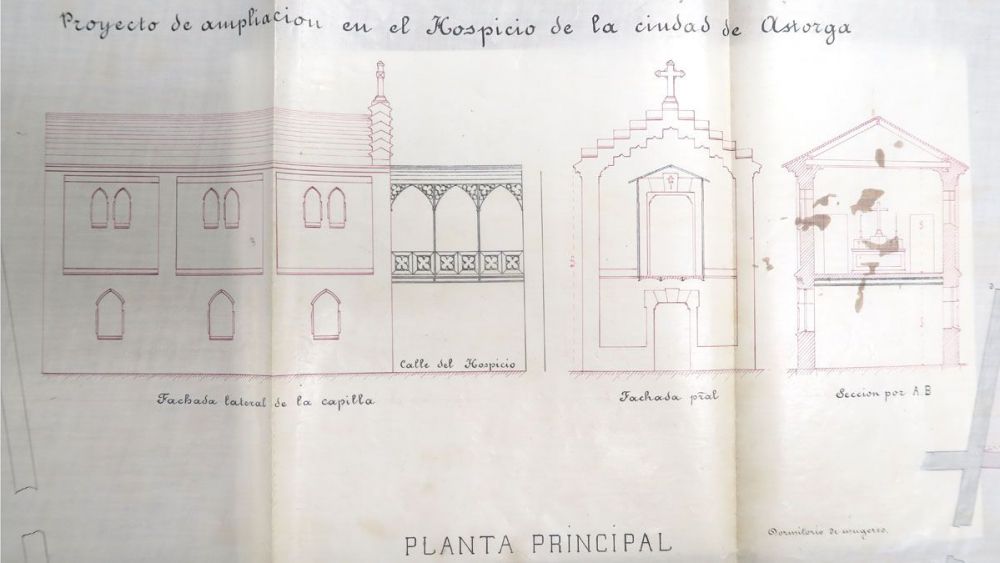 Proyecto de ampliacion en el Hospicio de la ciudad de Astorga
Calle del Hospicio
Fachada lateral de la capilla
Fachada pr̃al
Seccion por A.B
S
S
S
Dormitorio de mugeres.
PLANTA PRINCIPAL